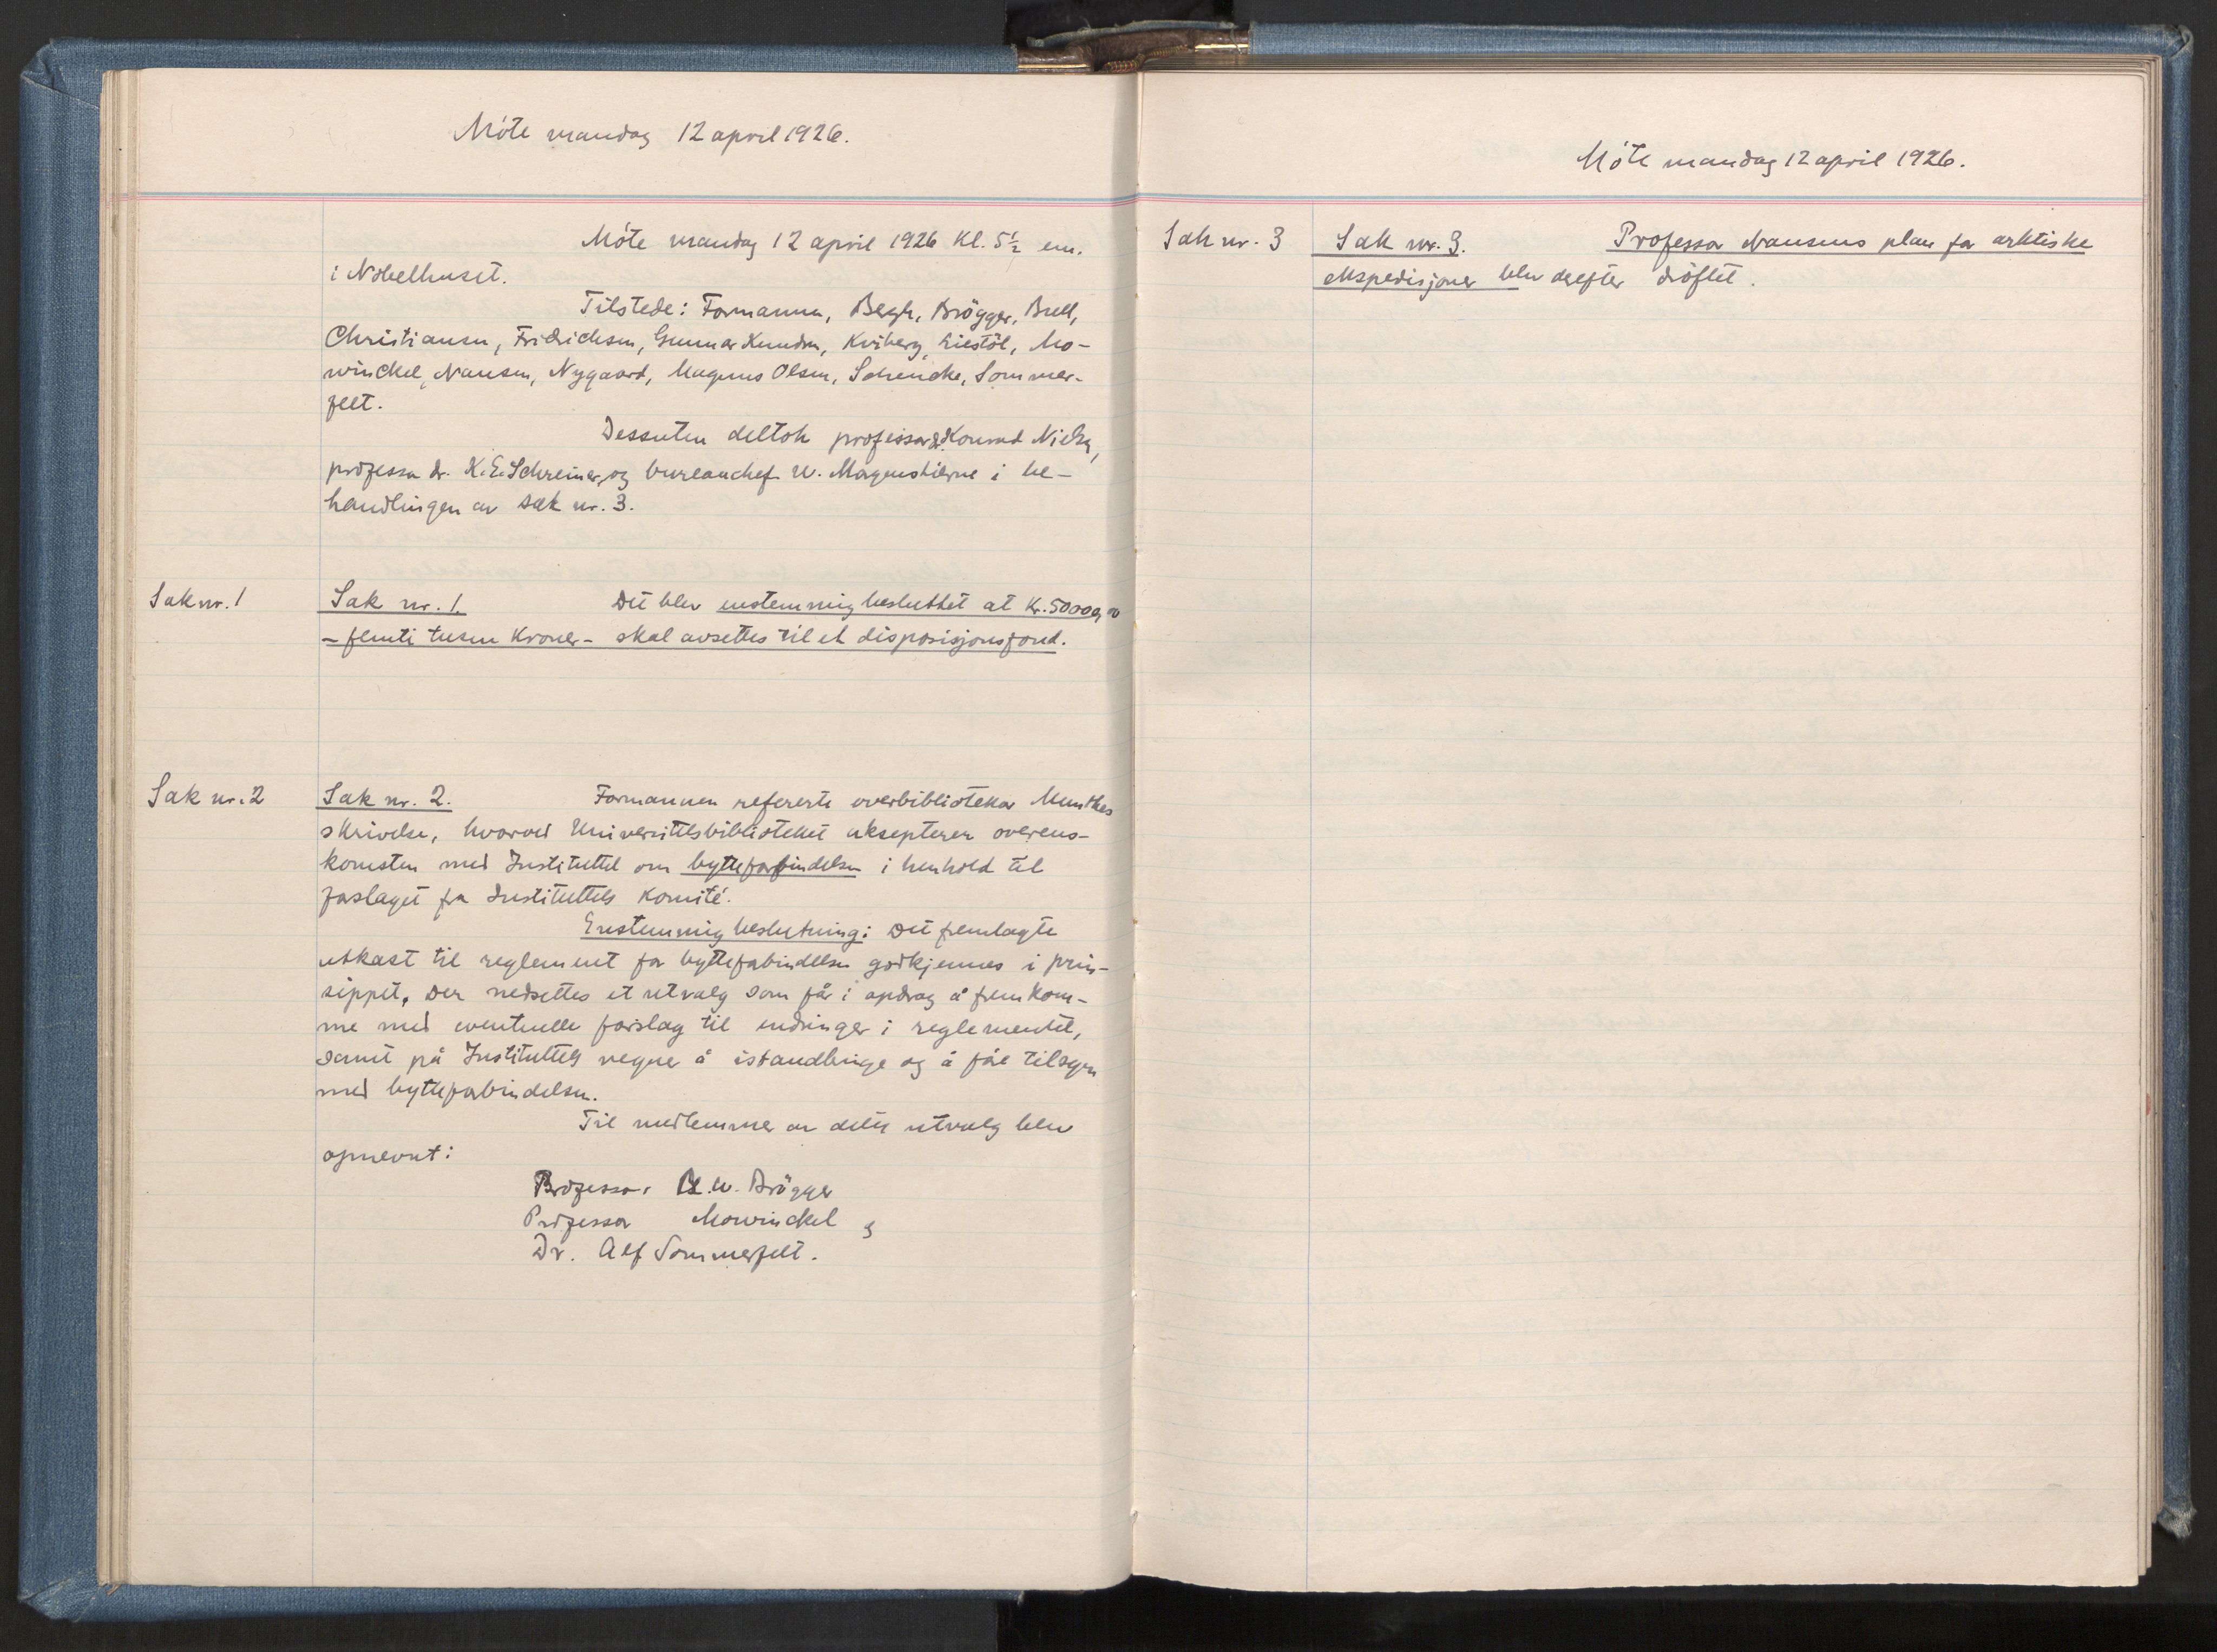 Möte mandag 12 april 1926.
Möte mandag 12 april 1926 Kl. 5½ em.
i Nobelhuset.
Tilstede: Formannen, Bergh, Brögger, Bull,
Christiansen, Fridrichsen, Gunnar Knudsen, Kviberg, Liestöl, Mo-
winckel, Nansen, Nygaard, Magnus Olsen, Schencke, Sommer-
felt.
Dessuten deltok professor dr. Konrad Nielsen,
professor dr. K.E. Schreiner, og bureauchef W. Magnushierne i be-
handlingen av sak nr. 3.
Sak nr. 1
Sak nr. 1. Det blev enstemmig besluttet at Kr. 50000,00
– femti tusen Kroner – skal avsettes til et disposisjonsfond.
Sak nr. 2
Sak nr. 2. Formannen refererte overbibliotekar Munthes
skrivelse, hvorved Universitetsbiblioteket aksepterer overens-
komsten med Instituttet om bytteforbindelsen i henhold til
forslaget fra Instituttets Komité.
Enstemmig beslutning: Det fremlagte
utkast til reglement for bytteforbindelsen godkjennes i prin-
sippet. Der nedsettes et utvalg som får i opdrag å fremkom-
me med eventuelle forslag til endringer i reglementet,
samt på Instituttets vegne å istandbringe og å føre tilsyn
med bytteforbindelsen.
Til medlemmer av dette utvalg blev
opnevnt:
Professor A.W. Brögger
Professor Mowinckel og
Dr. Alf Sommerfelt.
Möte mandag 12 april 1926.
Sak nr. 3
Sak nr. 3. Professor Nansens plan for arktiske
ekspedisjoner blev derefter dröftet.